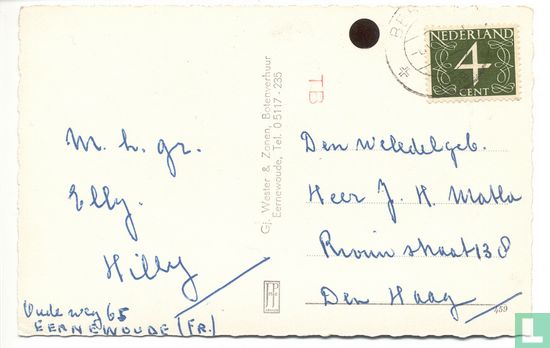 NEDERLAND
4
CENT
TB
Gj. Wester & Zonen, Botenverhuur
Eernewoude, Tel. 05117-235
M. h. gr.
Elly.
Hilly
Oude weg 65
EERNEWOUDE (FR.)
Den weledelgeb.
Heer J. H. Matla
straat 138
Den Haag
459